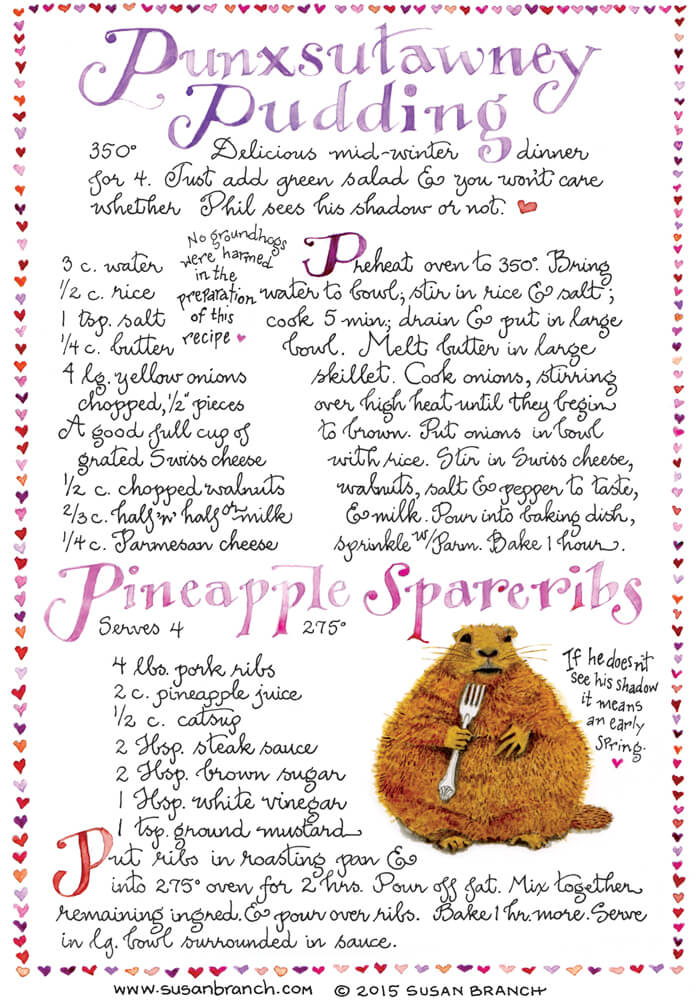 Punxsutawney
Pudding
350° Delicious mid-winter dinner
for 4. Just add green salad & you won't care
whether Phil sees his shadow or not.
3 c. water
1/2 c. rice
1 tsp. salt
1/4 c. butter
4 lg. yellow onions
chopped, 1/2" pieces
A good full cup of
grated Swiss cheese
1/2 c. chopped walnuts
2/3 c. half 'n' half or milk
1/4 c. Parmesan cheese
No groundhogs
were harmed
in the
preparation
of this
recipe
Preheat oven to 350°. Bring
water to bowl; stir in rice & salt;
cook 5 min; drain & put in large
bowl. Melt butter in large
skillet. Cook onions, stirring
over high heat until they begin
to brown. Put onions in bowl
with rice. Stir in Swiss cheese,
walnuts, salt & pepper to taste,
& milk. Pour into baking dish,
sprinkle w/Parm. Bake 1 hour.
Pineapple Spareribs
Serves 4 275°
4 lbs. pork ribs
2 c. pineapple juice
1/2 c. catsup
2 Tbsp. steak sauce
2 Tbsp. brown sugar
1 Tbsp. white vinegar
1 tsp. ground mustard
If he doesn't
see his shadow
it means
an early
Spring.
Put ribs in roasting pan &
into 275° oven for 2 hrs. Pour off fat. Mix together
remaining ingred. & pour over ribs. Bake 1 hr. more. Serve
in lg. bowl surrounded in sauce.
www.susanbranch.com © 2015 SUSAN BRANCH